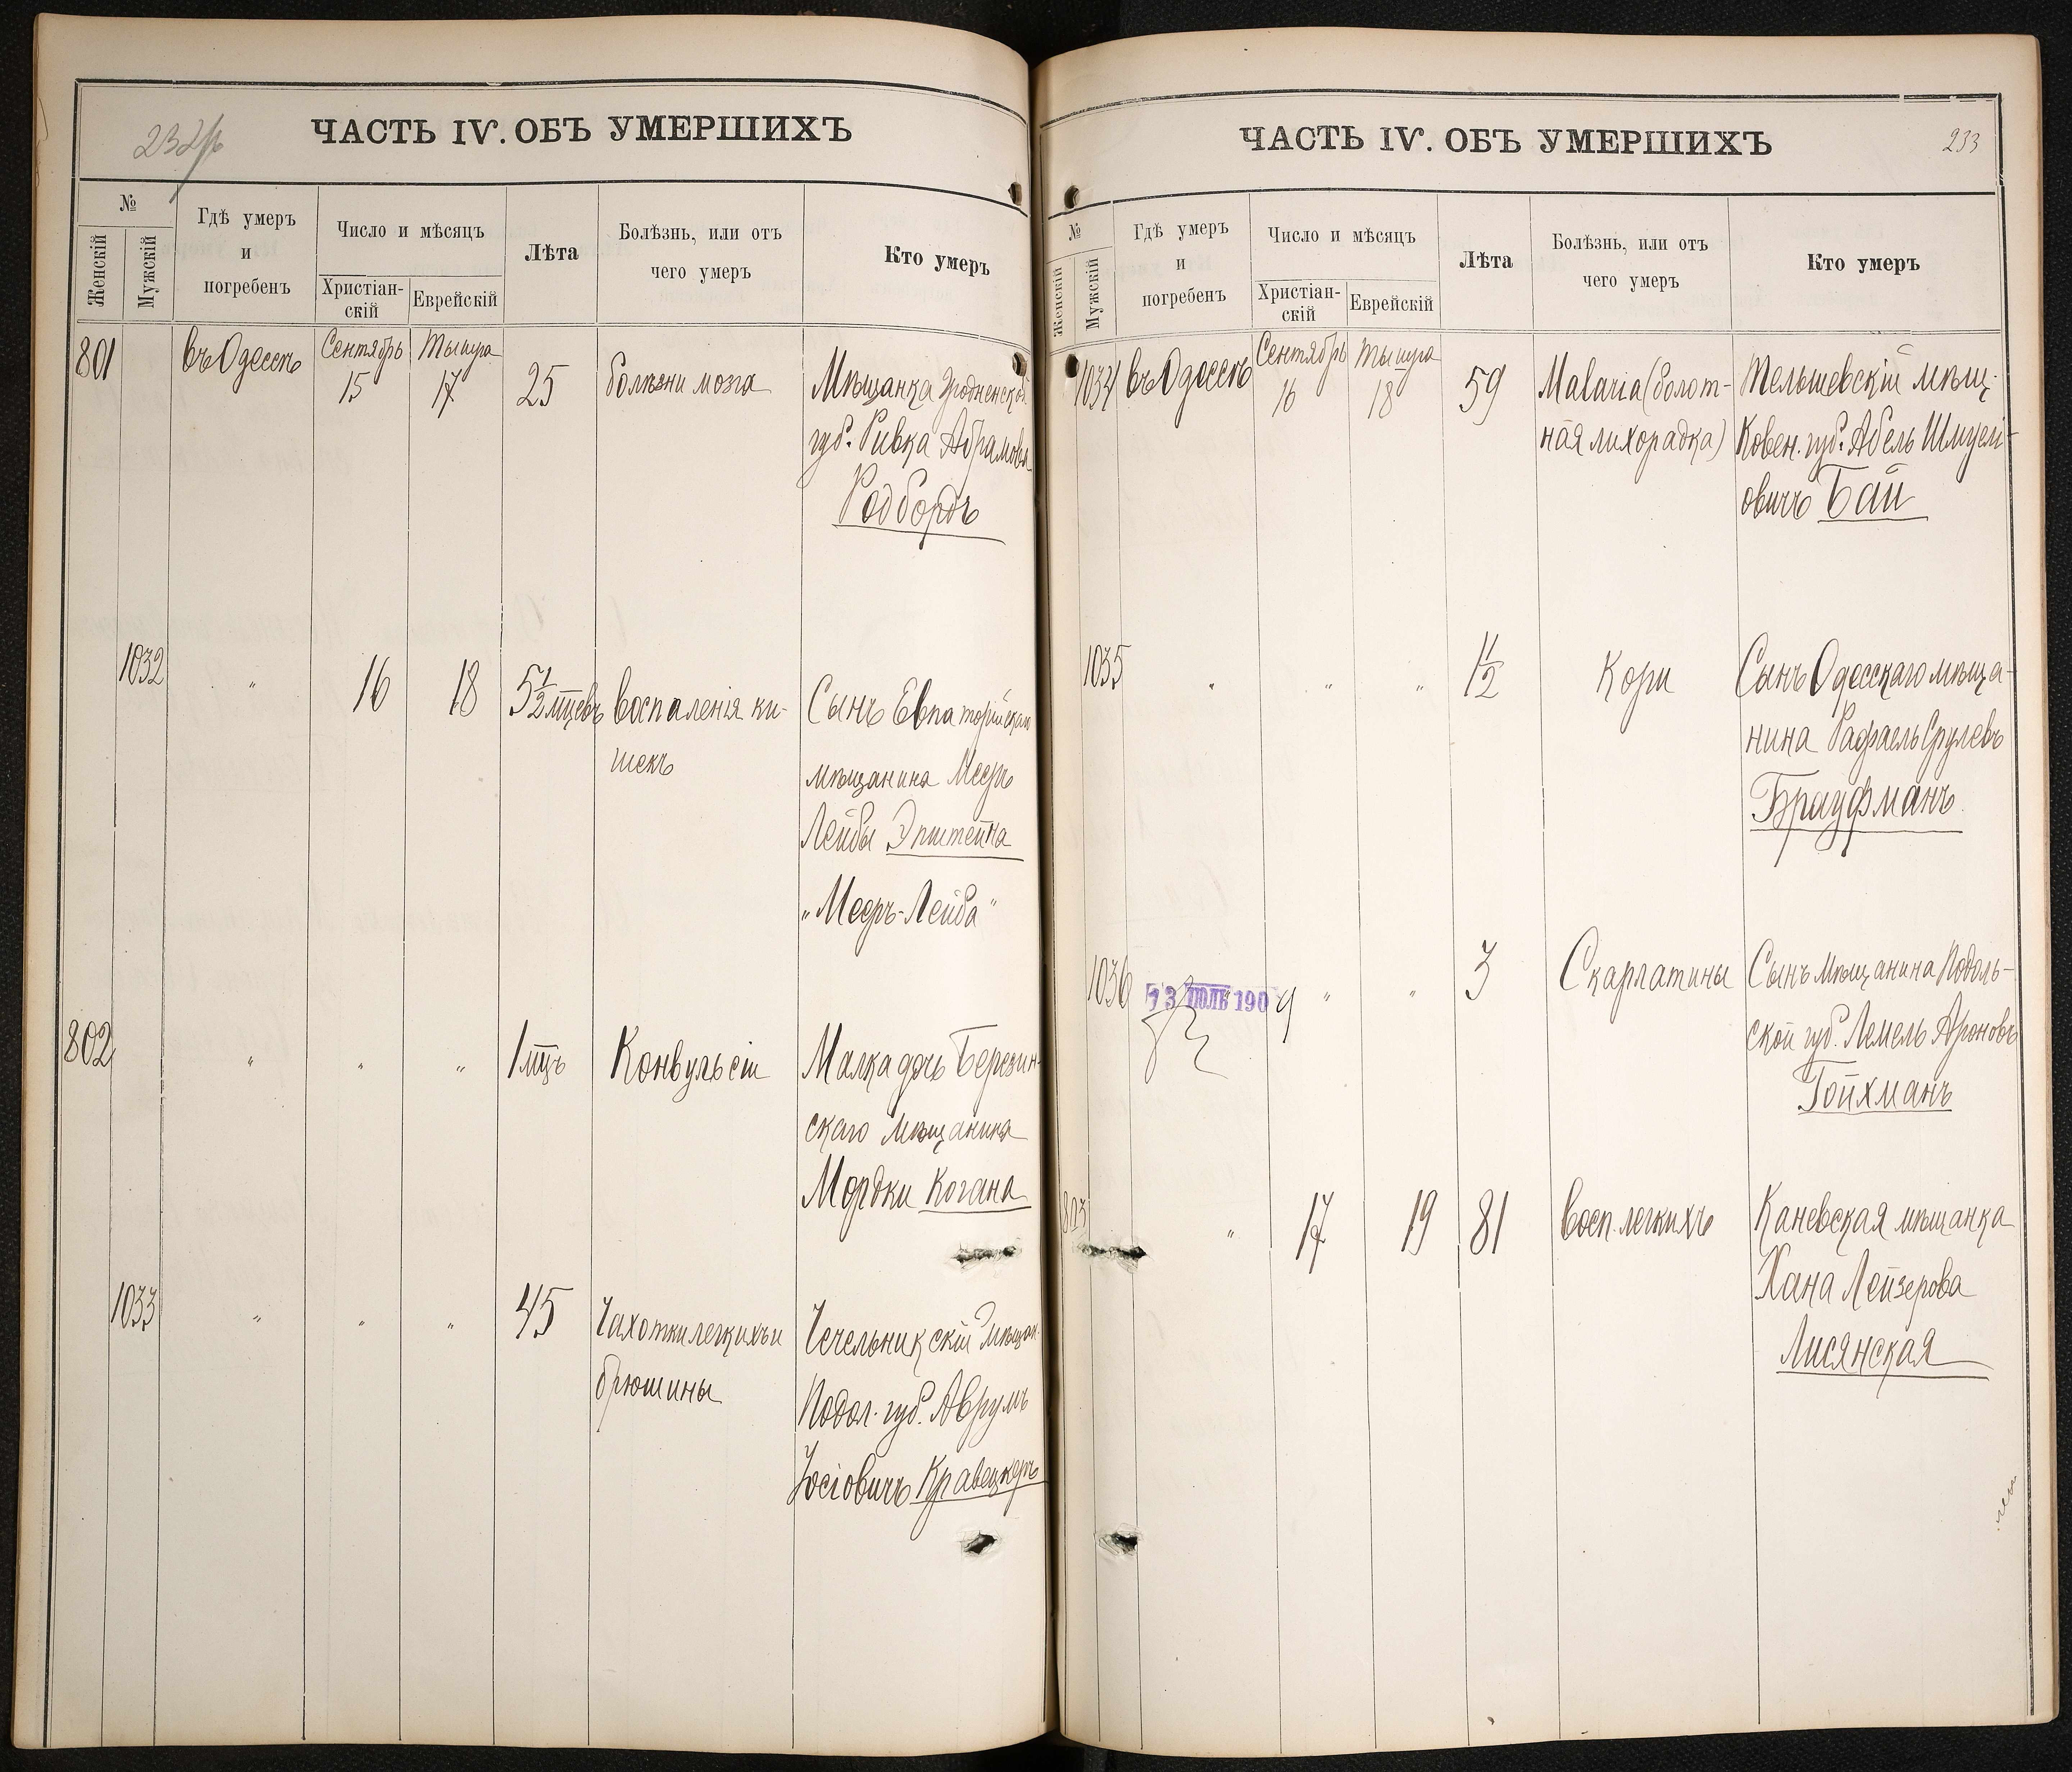 232 об
ЧАСТЬ IV. ОБЪ УМЕРШИХЪ
№
Женскій
Мужскій
Гдѣ умеръ
и
погребенъ
Число и мѣсяцъ
Христіан-
скій
Еврейскій
Лѣта
Болѣзнь, или отъ
чего умеръ
Кто умеръ
801
въ Одессѣ
Сентябрь
15
Тышра
17
25
болѣзни мозга
Мѣщанка Гродненской
губ. Ривка Абрамова
Родбордъ
1032
"
16
18
5 1/2 мцевъ
воспаленія ки-
шекъ
Сынъ Евпаторійскаго
мѣщанина Мееръ
Лейбы Эпштейна
"Мееръ-Лейба"
802
"
"
"
1 мцъ
Конвульсіи
Малка дочь Березин-
скаго мѣщанина
Мордки Когана
1033
"
"
"
45
Чахотки легкихъ и
брюшины
Чечельникскій мѣщан.
Подол. губ. Аврумъ
Іосіовичъ Кравецкеръ
ЧАСТЬ IV. ОБЪ УМЕРШИХЪ
233
№
Женскій
Мужскій
Гдѣ умеръ
и
погребенъ
Число и мѣсяцъ
Христіан-
скій
Еврейскій
Лѣта
Болѣзнь, или отъ
чего умеръ
Кто умеръ
1034
въ Одессѣ
Сентябрь
16
Тышра
18
59
Malaria (болот-
ная лихорадка)
Тельшевскій мѣщ.
Ковен. губ. Абель Шмуели-
овичъ Бай
1035
"
"
"
1 1/2
Кори
Сынъ Одесскаго мѣща-
нина Рафаель Срулевъ
Брауфманъ
1036
13 ІЮЛЬ 190 9
"
"
3
Скарлатины
Сынъ мѣщанина Подоль-
ской губ. Лемель Ароновъ
Гойхманъ
803
"
17
19
81
Восп. легкихъ
Каневская мѣщанка
Хана Лейзерова
Лисянская